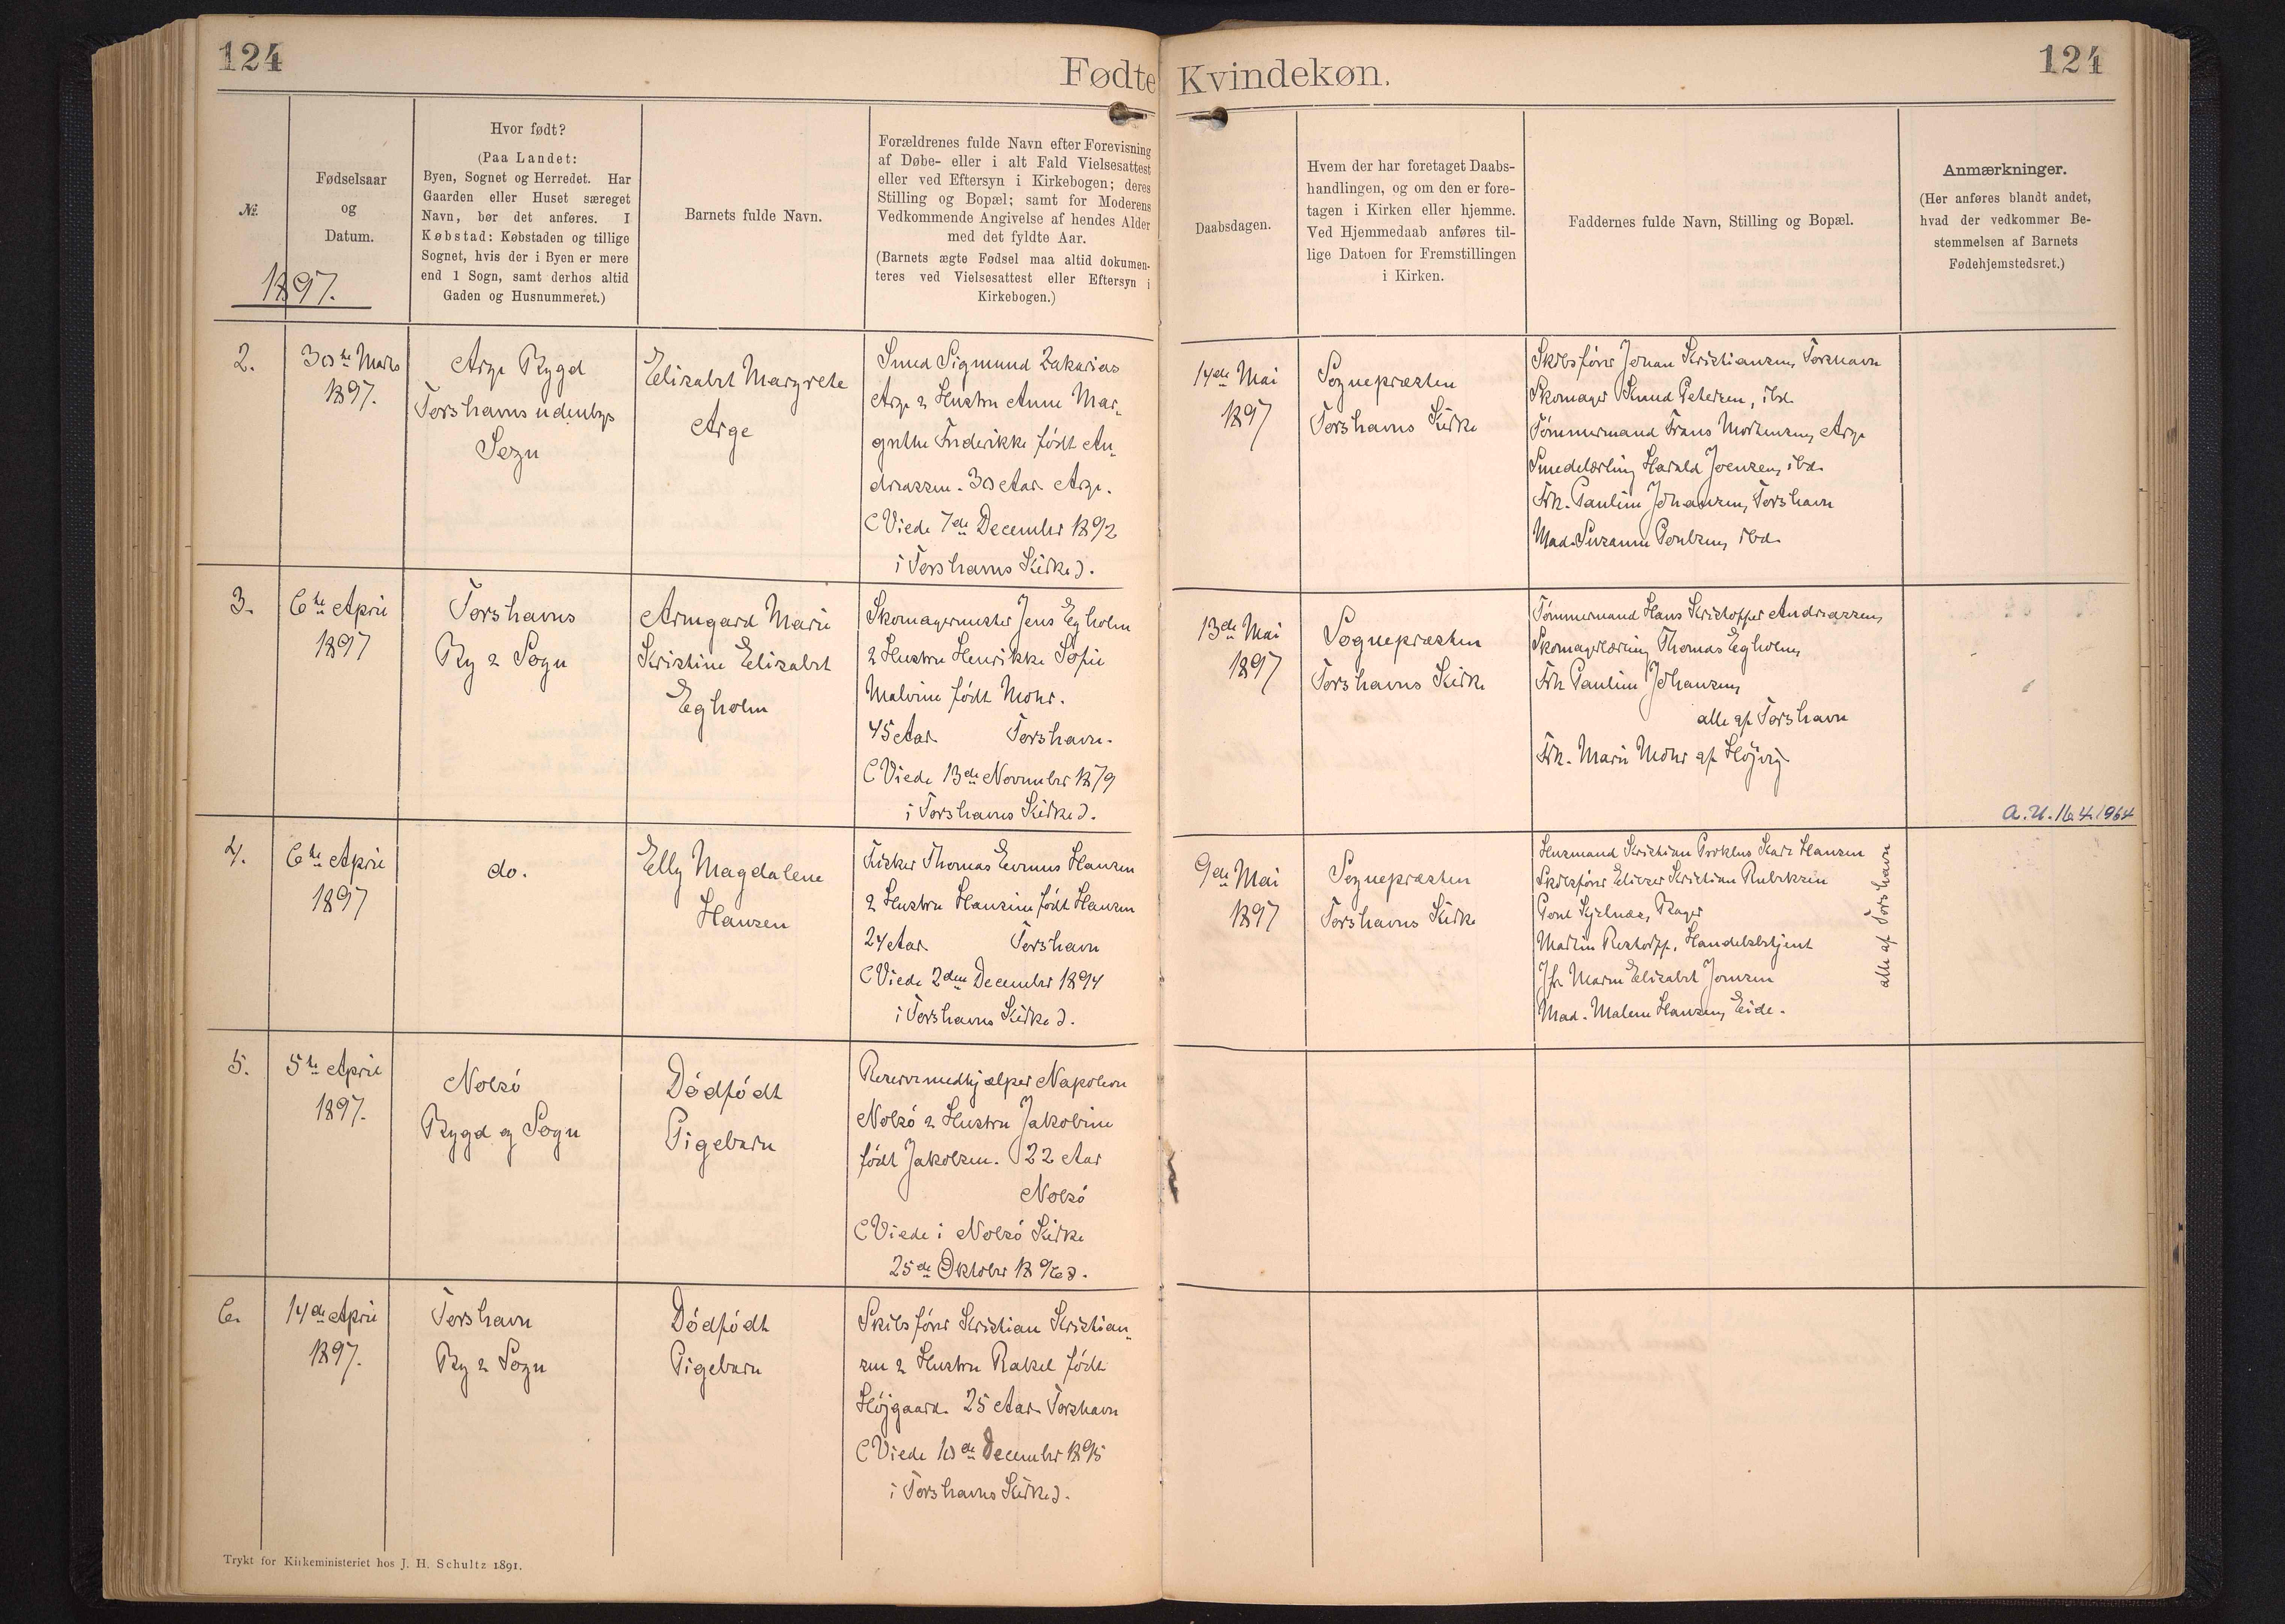 124
Fødte Kvindekøn.
124
Nr.
Fødselsaar
og
Datum.
1897.
Hvor født?
(Paa Landet:
Byen, Sognet og Herredet. Har
Gaarden eller Huset særeget
Navn, bør det anføres. I
Købstad: Købstaden og tillige
Sognet, hvis der i Byen er mere
end 1 Sogn, samt derhos altid
Gaden og Husnummeret.)
Barnets fulde Navn.
Forældrenes fulde Navn efter Forevisning
af Døbe- eller i alt Fald Vielsesattest
eller ved Eftersyn i Kirkebogen; deres
Stilling og Bopæl; samt for Moderens
Vedkommende Angivelse af hendes Alder
med det fyldte Aar.
(Barnets ægte Fødsel maa altid dokumen-
teres ved Vielsesattest eller Eftersyn i
Kirkebogen.)
Daabsdagen.
Hvem der har foretaget Daabs-
handlingen, og om den er fore-
tagen i Kirken eller hjemme.
Ved Hjemmedaab anføres til-
lige Datoen for Fremstillingen
i Kirken.
Faddernes fulde Navn, Stilling og Bopæl.
Anmærkninger.
(Her anføres blandt andet,
hvad der vedkommer Be-
stemmelsen af Barnets
Fødehjemstedsret.)
2.
30te Marts
1897.
Arge Bygd
Torshavns udenbys
Sogn
Elisabet Margrete
Arge
Smed Sigmund Zakarias
Arge & Hustru Anne Mar-
grethe Frederikke födt An-
dreassen. 30 Aar. Arge.
(Viede 7de December 1892
i Torshavns Kirke).
14de Mai
1897
Sognepræsten
Torshavns Kirke
Skibsförer Johan Kristiansen, Torshavn
Skomager Knud Petersen, ibd.
Tömmermand Frans Mortensen, Arge
Smedelærling Harald Joensen, ibd.
Frk. Pauline Johansen, Torshavn
Mad. Susanne Poulsen, ibd.
3.
6te April
1897
Torshavns
By & Sogn
Armgard Marie
Kristine Elisabet
Egholm
Skomagermester Jens Egholm
& Hustru Henrikke Sofie
Malvine födt Mohr.
45 Aar. Torshavn.
(Viede 13de November 1879
i Torshavns Kirke).
13de Mai
1897
Sognepræsten
Torshavns Kirke
Tömmermand Hans Kristoffer Andreassen,
Skomagerlærling Thomas Egholm,
Frk Pauline Johansen,
alle af Torshavn
Frk. Marie Mohr af Höjvig
A.U. 16.4.1964
4.
6te April
1897
do.
Elly Magdalene
Hansen
Fisker Thomas Hansen
& Hustru Hansine födt Hansen
24 Aar. Torshavn
(Viede 2den December 1894
i Torshavns Kirke).
9de Mai
1897
Sognepræsten
Torshavns Kirke
Husmand Kristian Karl Hansen
Skibsförer Elieser Kristian Rubeksen
Poul Kjelnæs, Bager
Martin Restorff, Handelsbetjent
Jfr. Maren Elisabet Joensen
alle af Torshavn
Mad. Malene Hansen, Eide.
5.
5te April
1897.
Nolsö
Bygd og Sogn
Dödfödt
Pigebarn
Reservemedhjælper Napoleon
Nolsö & Hustru Jakobine
födt Jakobsen. 22 Aar
Nolsö
(Viede i Nolsö Kirke
25de Oktober 1896).
6.
14de April
1897.
Torshavn
By & Sogn
Dödfödt
Pigebarn
Skibsförer Kristian Kristian-
sen & Hustru Rakel födt
Höjgaard. 25 Aar. Torshavn
(Viede 10de December 1895
i Torshavns Kirke).
Trykt for Kirkeministeriet hos J. H. Schultz 1891.